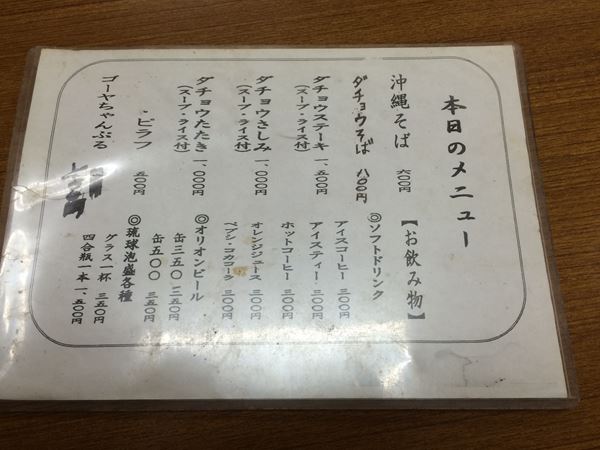 本日のメニュー
沖縄そば 六〇〇円
ダチョウそば 八〇〇円
ダチョウステーキ 一、五〇〇円
(スープ・ライス付)
ダチョウさしみ 一、〇〇〇円
(スープ・ライス付)
ダチョウたたき 一、〇〇〇円
(スープ・ライス付)
・ピラフ 五〇〇円
ゴーヤちゃんぷる
【お飲み物】
◎ソフトドリンク
アイスコーヒー 三〇〇円
アイスティー 三〇〇円
ホットコーヒー 三〇〇円
オレンジジュース 三〇〇円
ペプシ・コカコーラ 三〇〇円
◎オリオンビール
缶三五〇 二五〇円
缶五〇〇 三五〇円
◎琉球泡盛各種
グラス一杯 三五〇円
四合瓶一本 一、五〇〇円